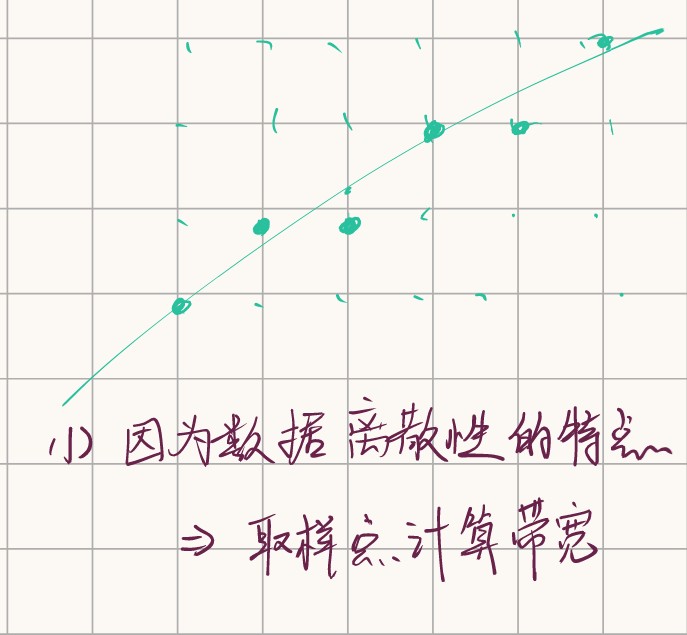 (1) 因为数据离散性的特点
⇒ 取样点计算带宽